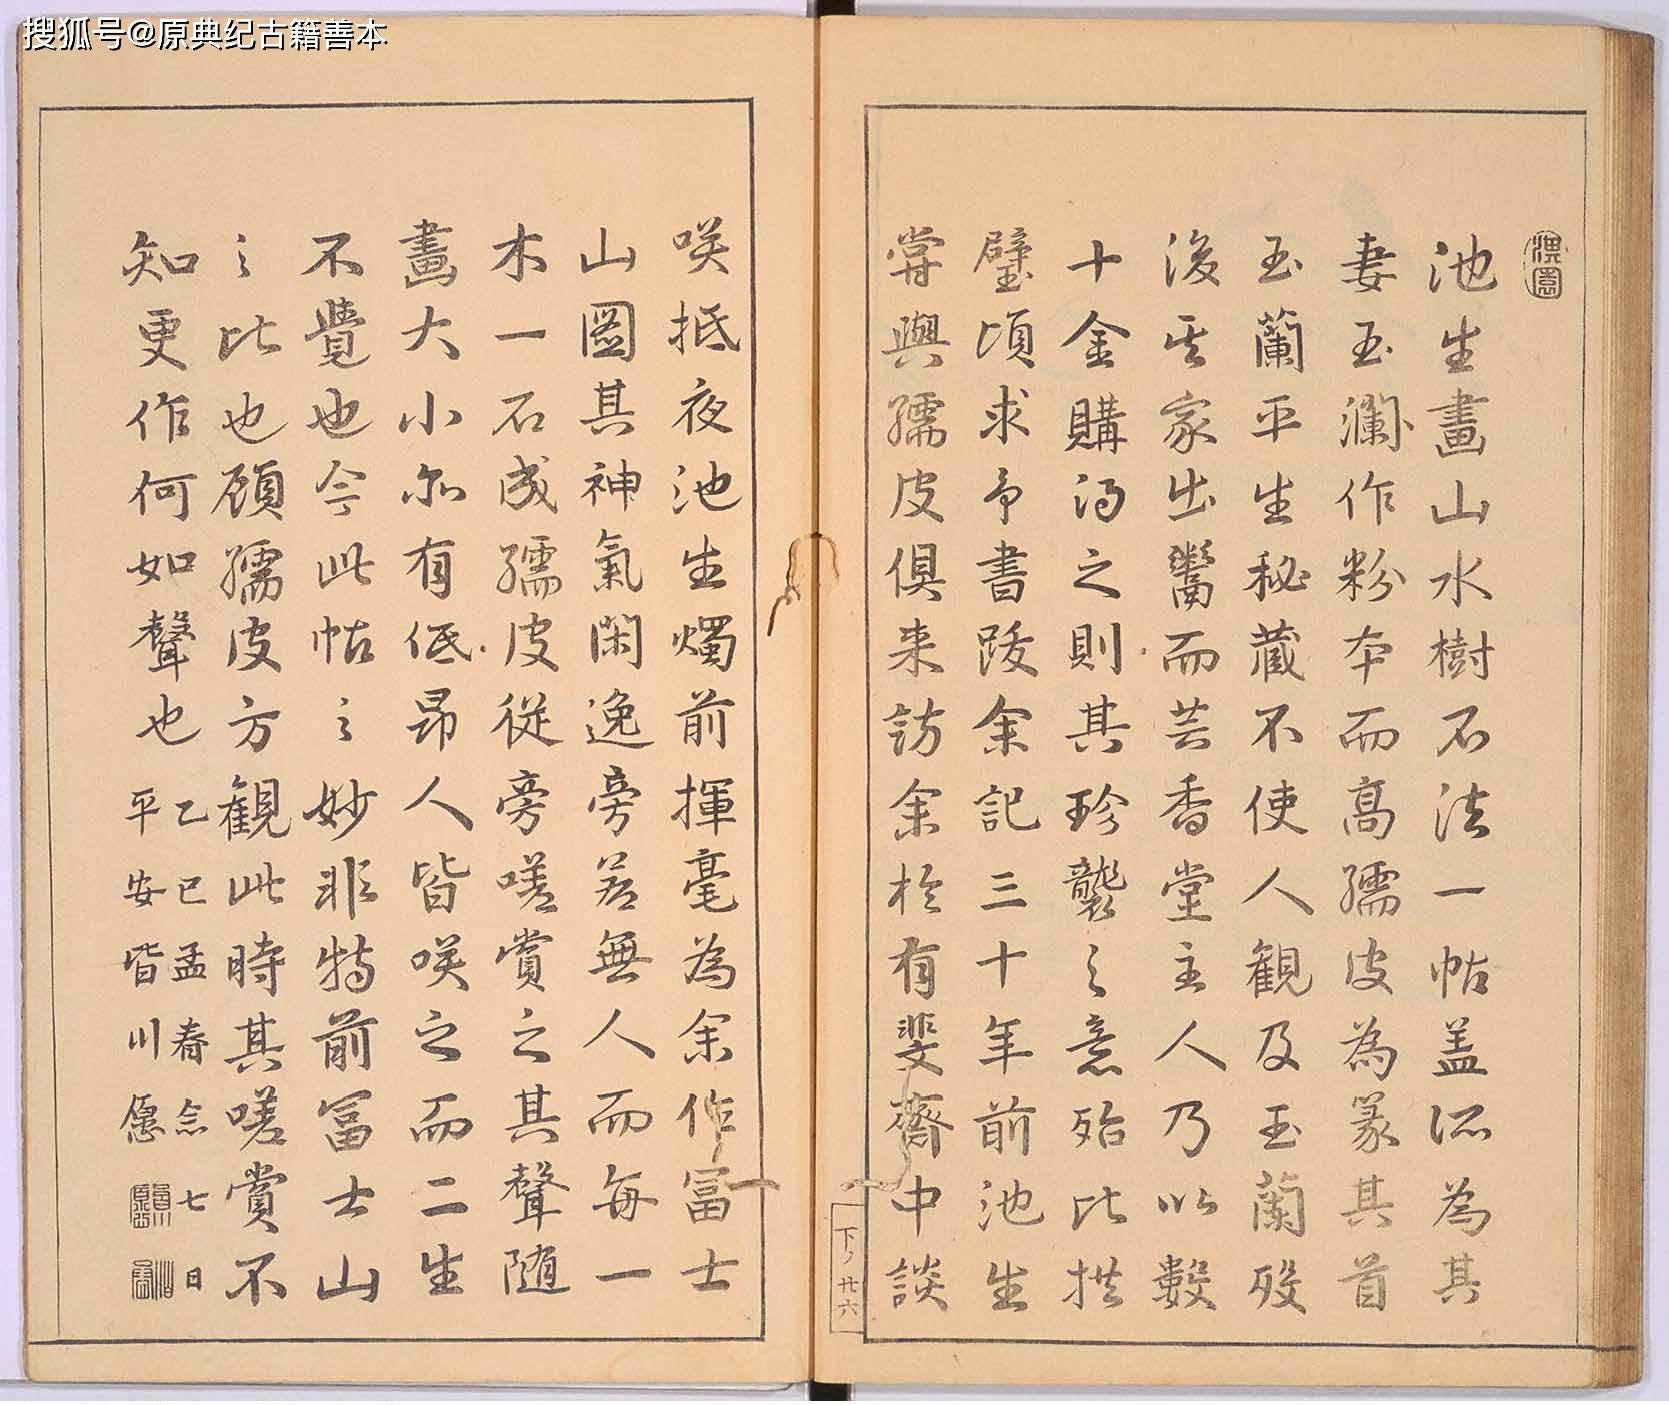 搜狐号@原典纪古籍善本
淇園
池生畫山水樹石法一帖盖所為其
妻玉瀾作粉本而髙孺皮為篆其首
玉蘭平生秘藏不使人観及玉蘭歿
後其家出鬻而芸香堂主人乃以數
十金購得之則其珍襲之意殆比拱
璧頃求予書跋余記三十年前池生
嘗與孺皮俱来訪余於有斐齋中談
咲抵夜池生燭前揮毫為余作冨士
山圖其神氣閑逸旁若無人而每一
木一石成孺皮従旁嗟賞之其聲随
畫大小亦有低昂人皆咲之而二生
不覺也今此帖之妙非特前冨士山
之比也顧孺皮方観此時其嗟賞不
知更作何如聲也
乙巳孟春念七日
平安皆川愿
下ノ廿六